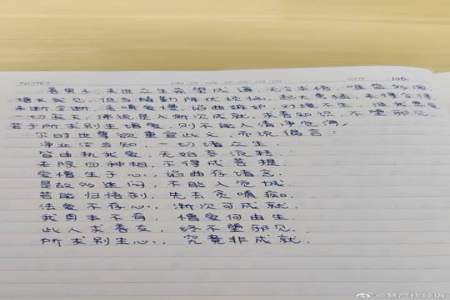 善男子,末世众生希望成道,无令求悟,唯益多闻,
增长我见,但当精勤降伏烦恼,起大勇猛,未得令得,
未断令断,贪嗔爱慢,谄曲嫉妒,对境不生,彼我恩爱,
一切寂灭,佛说是人渐次成就,求善知识,不堕邪见,
若于所求别生憎爱,则不能入清净觉海。
尔时世尊欲重宣此义,而说偈言:
净业汝当知,一切诸众生,
皆由执我爱,无始妄流转,
未除四种相,不得成菩提,
爱憎生于心,谄曲存诸念,
是故多迷闷,不能入觉城,
若能归悟刹,先去贪嗔痴,
法爱不存心,渐次可成就,
我身本不有,憎爱何由生,
此人求善友,终不堕邪见,
所求别生心,究竟非成就.